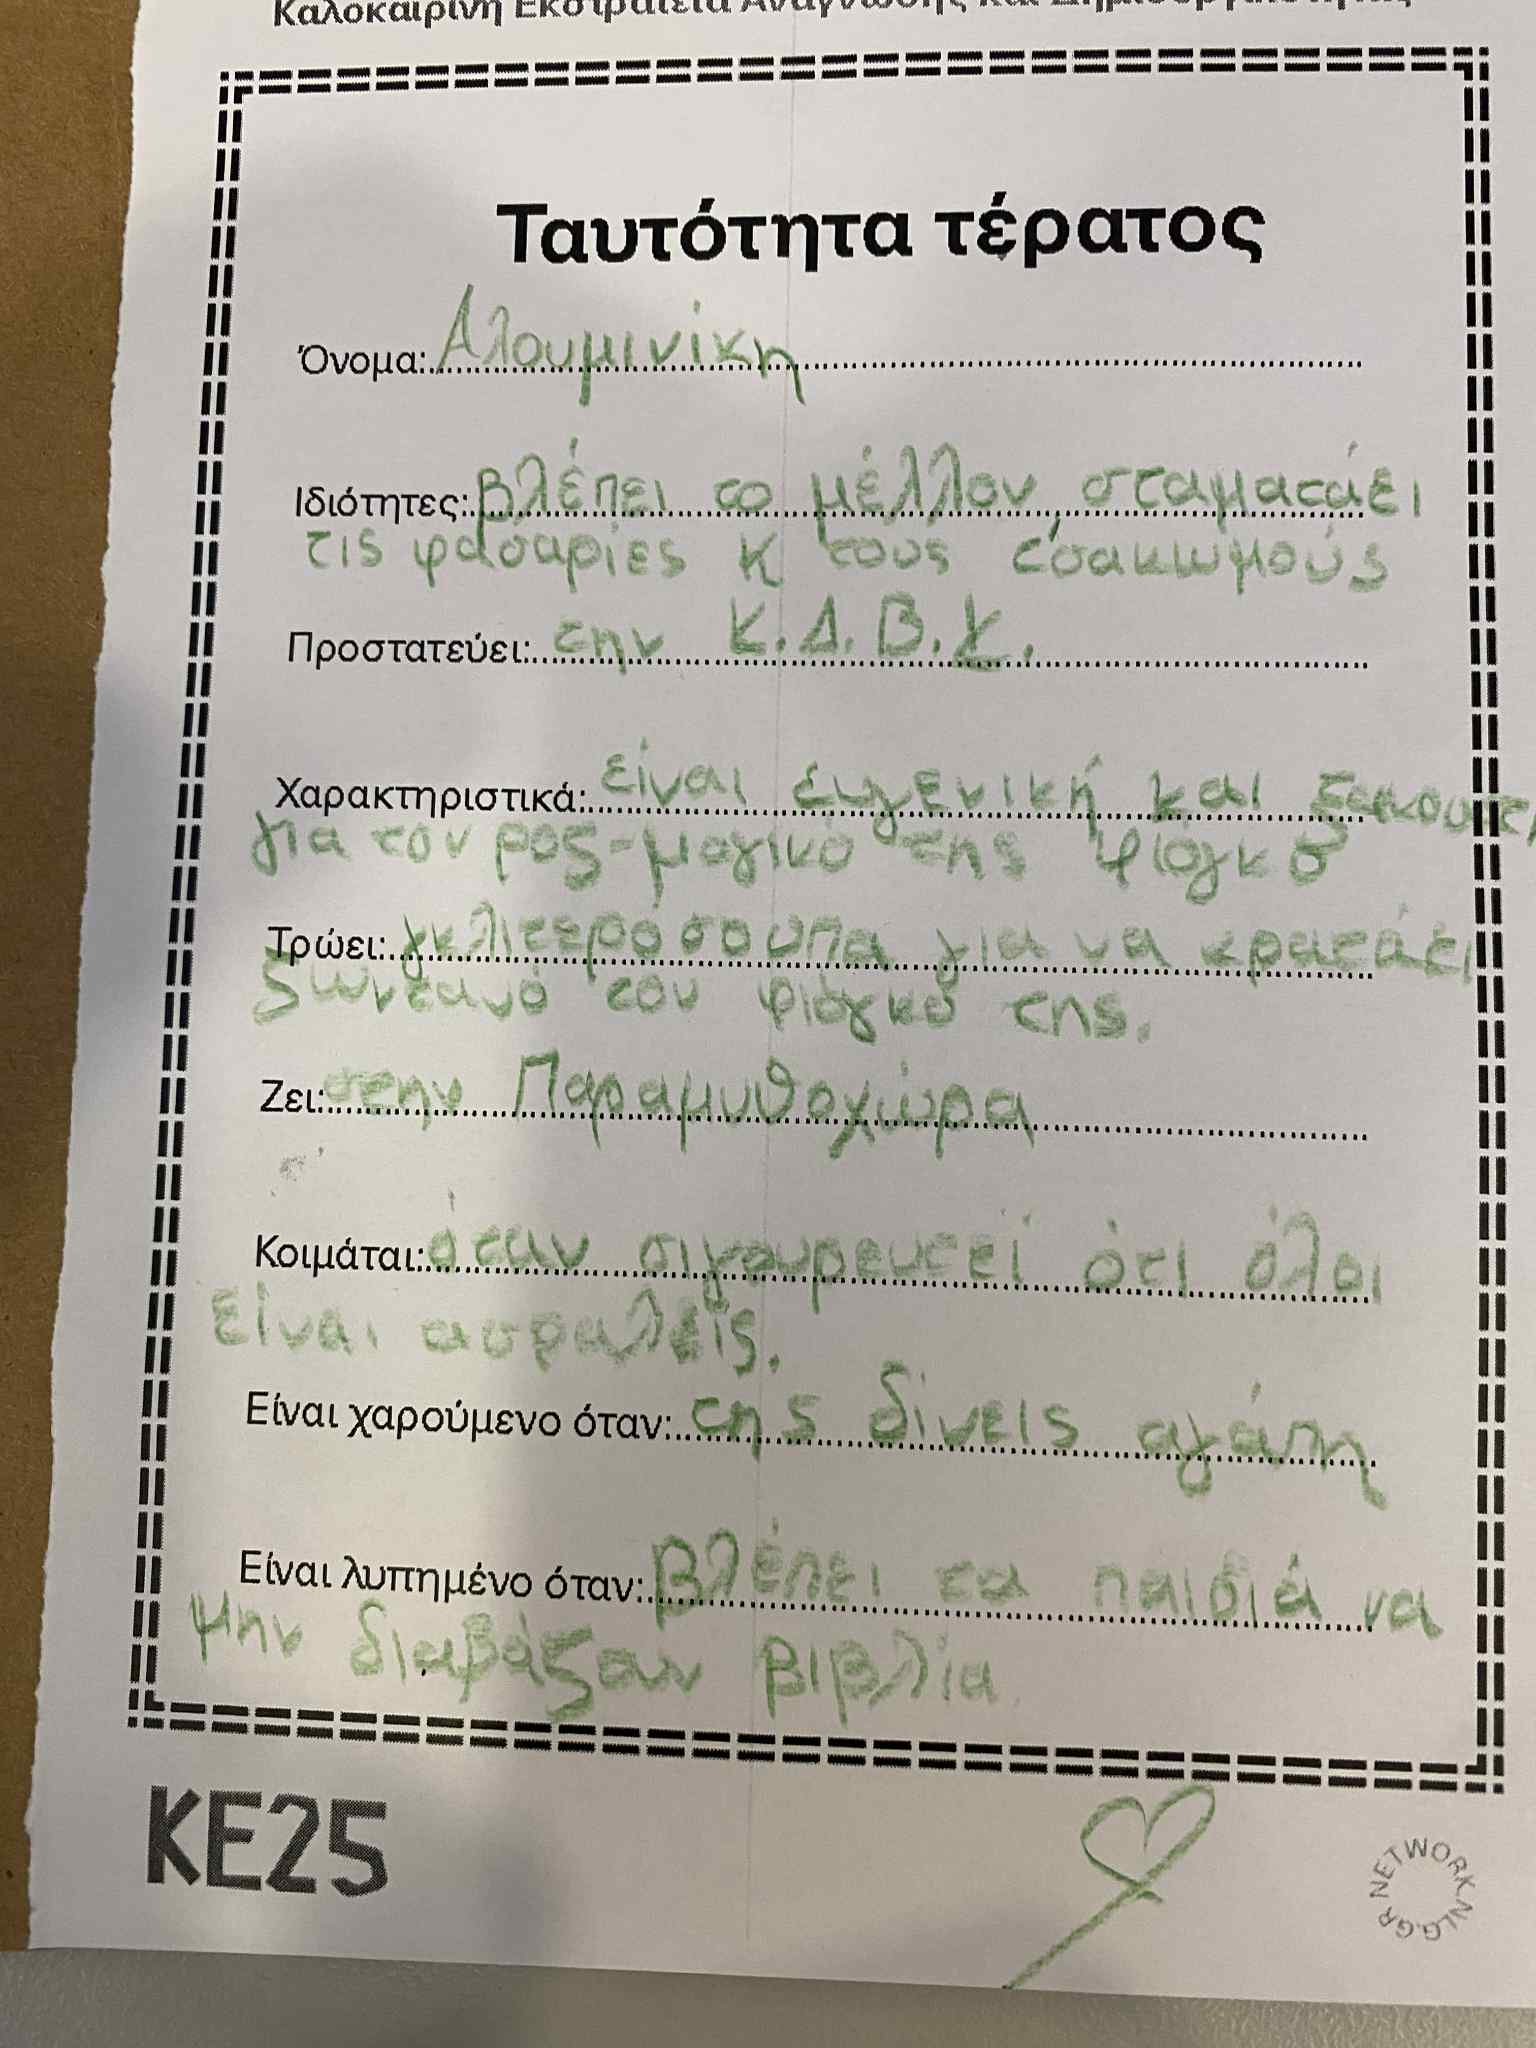 Καλοκαιρινή Εκστρατεία Ανάγνωσης και Δημιουργικότητας
Ταυτότητα τέρατος
Όνομα: Αλουμινίκη
Ιδιότητες: βλέπει το μέλλον, σταματάει
τις φασαρίες κ τους τσακωμούς
Προστατεύει: την Κ.Δ.Β.Χ.
Χαρακτηριστικά: είναι ευγενική και
για τον ροζ-μαγικό της φιόγκο
Τρώει: γκλιτερόσουπα για να κρατάει
ζωντανό τον φιόγκο της.
Ζει: στην Παραμυθοχώρα
Κοιμάται: όταν σιγουρευτεί ότι όλοι
είναι ασφαλείς.
Είναι χαρούμενο όταν: της δίνεις αγάπη
Είναι λυπημένο όταν: βλέπει τα παιδιά να
μην διαβάζουν βιβλία
KE25
NETWORK.NLG.GR